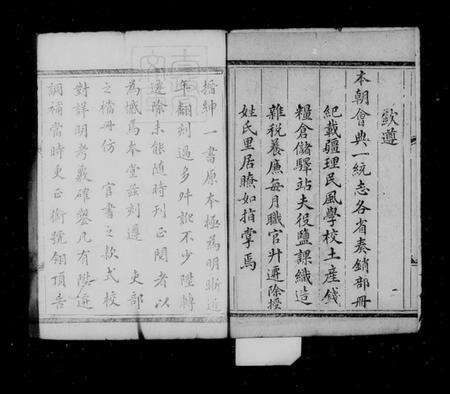 欽遵
本朝會典一統志各省奏銷部冊
紀載疆理民風學校土產錢
糧倉儲驛站夫役鹽課織造
雜稅養廉每月職官升遷除授
姓氏里居瞭如指掌焉
一
搢紳一書原本極為明晰近
年翻刻過多舛訛不少陞轉
遷除未能隨時刊正閱者以
為憾焉本堂茲刻遵 吏部
之檔冊仿 官書之款式校
對詳明考覈確鑿凡有陞遷
調補當時更正銜號翎頂告